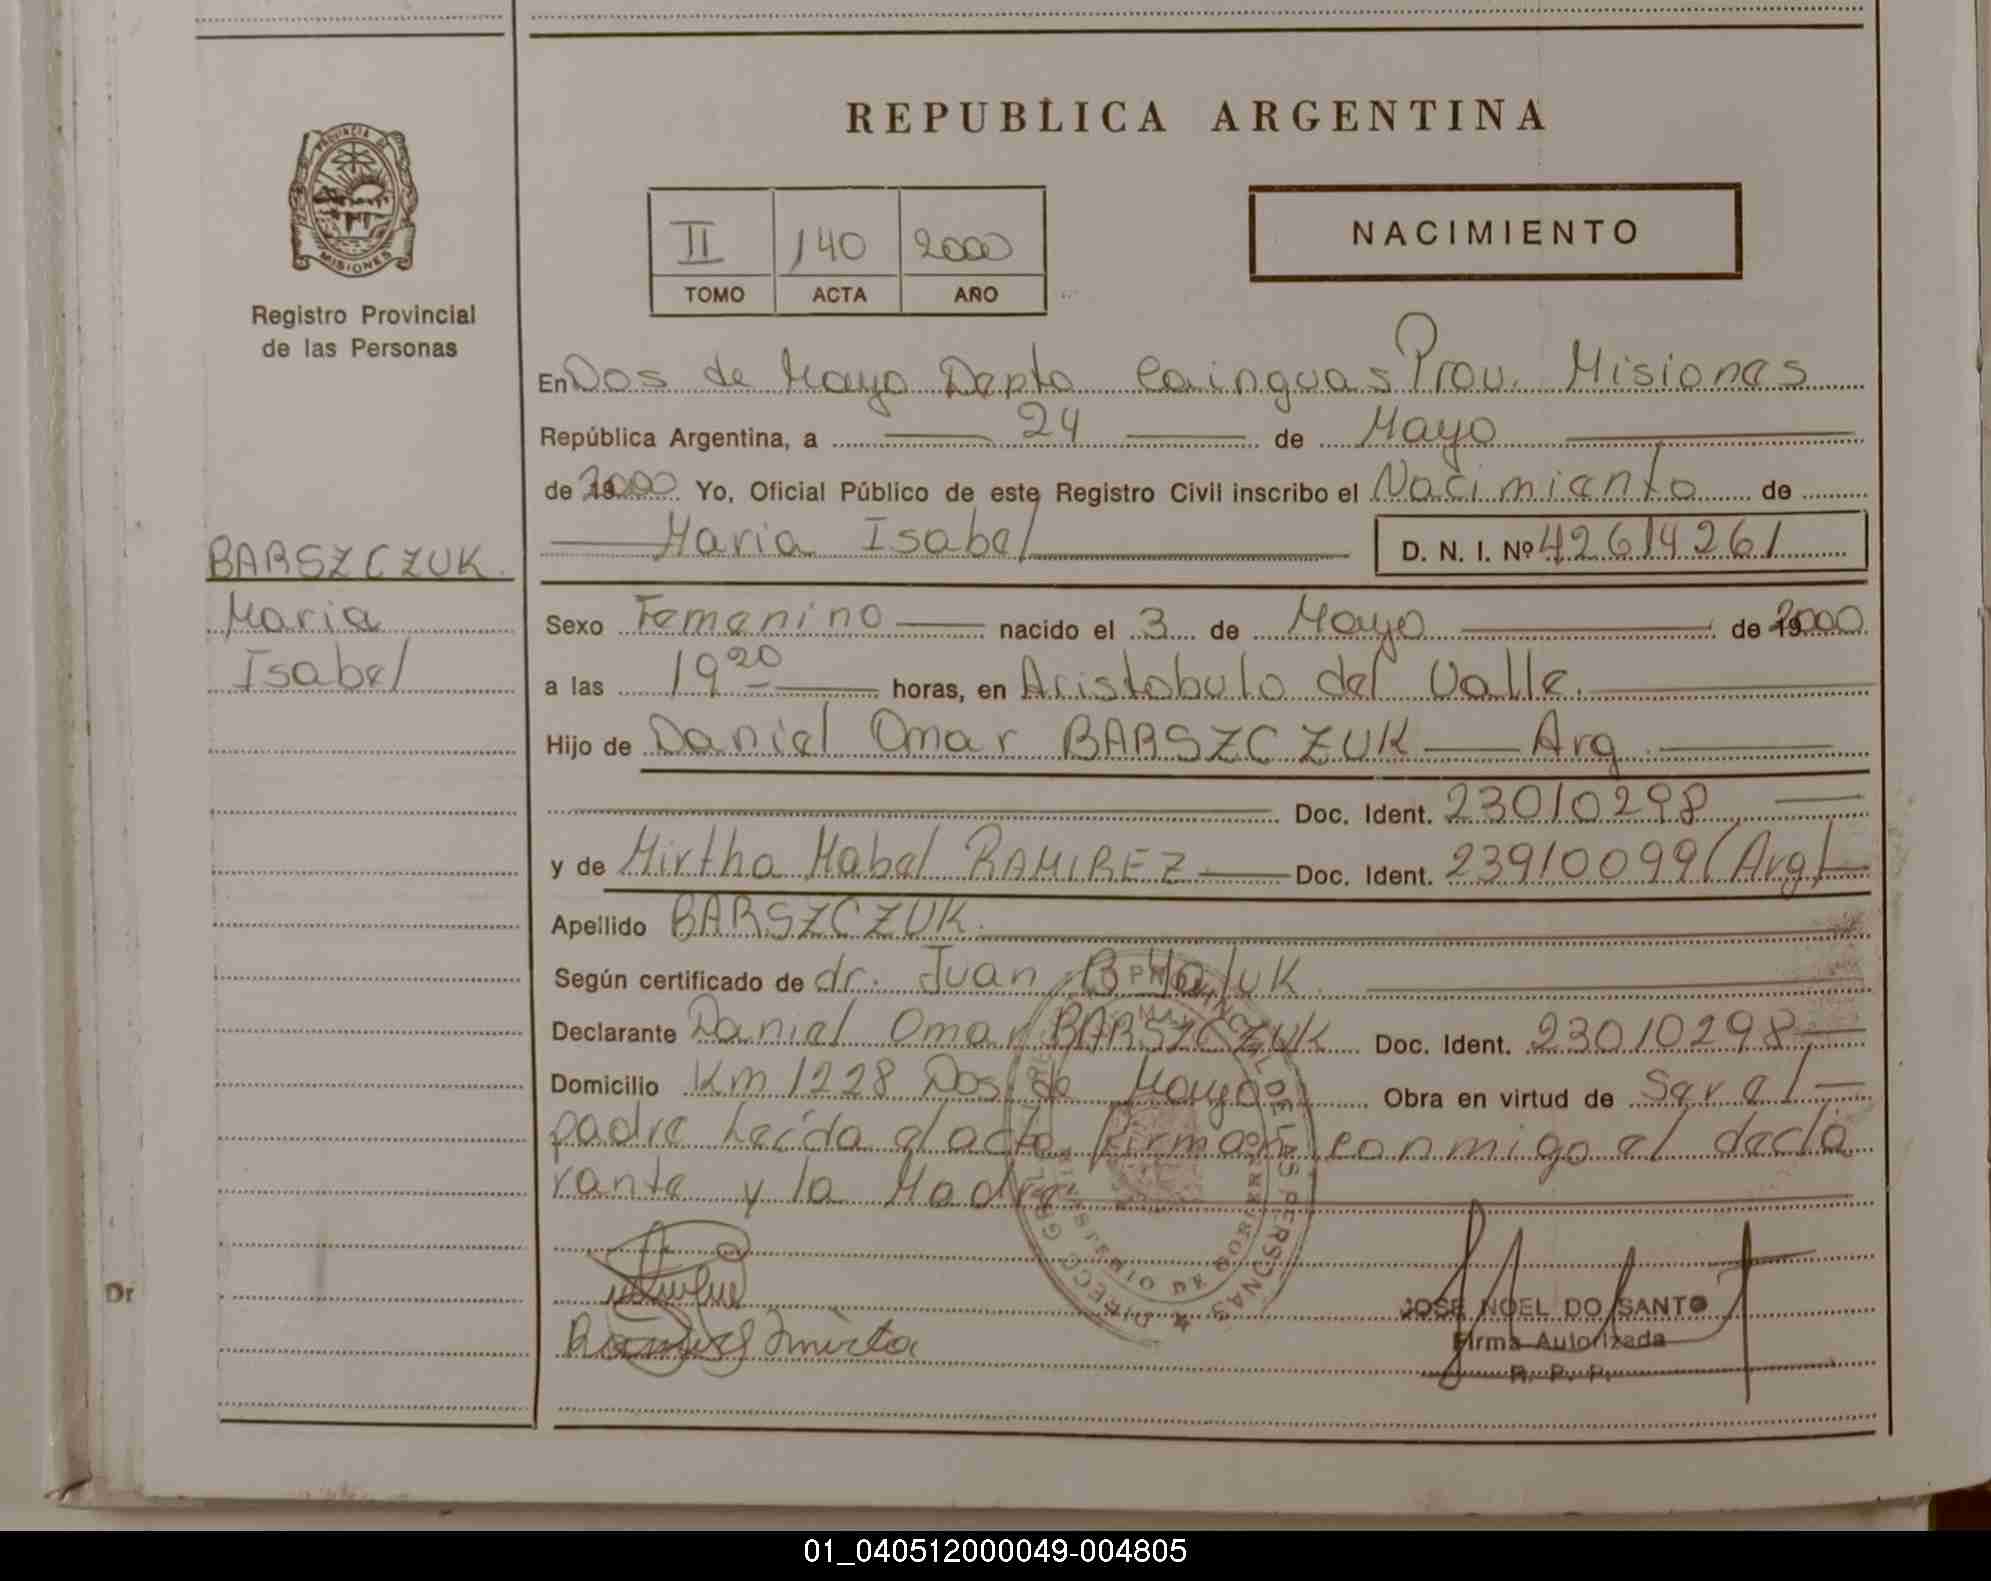 REPUBLICA ARGENTINA
PROVINCIA DE
MISIONES
Registro Provincial
de las Personas
II 140 2000
TOMO ACTA AÑO
NACIMIENTO
En Dos de Mayo Depto Cainguas Prov. Misiones
República Argentina, a 24 de Mayo
de 2000 Yo, Oficial Público de este Registro Civil inscribo el Nacimiento de
Maria Isabel D. N. I. Nº 42614261
BARSZCZUK.
Maria
Isabel
Sexo Femenino nacido el 3 de Mayo de 2000
a las 19 20 horas, en Aristobulo del Valle.
Hijo de Daniel Omar BARSZCZUK Arg.
Doc. Ident. 23010298
y de Mirtha Mabel RAMIREZ Doc. Ident. 23910099 (Arg)
Apellido BARSZCZUK.
Según certificado de dr. Juan B
Declarante Daniel Omar BARSZCZUK Doc. Ident. 23010298
Domicilio Km 1228 Dos de Mayo Obra en virtud de Ser el
padre Leída el acta firman conmigo el decla
rante y la Madre
DE LAS PERSONAS
Ramirez Mirta
JOSE NOEL DO SANTO
Firma Autorizada
R. P. P.
Dr
01_040512000049-004805